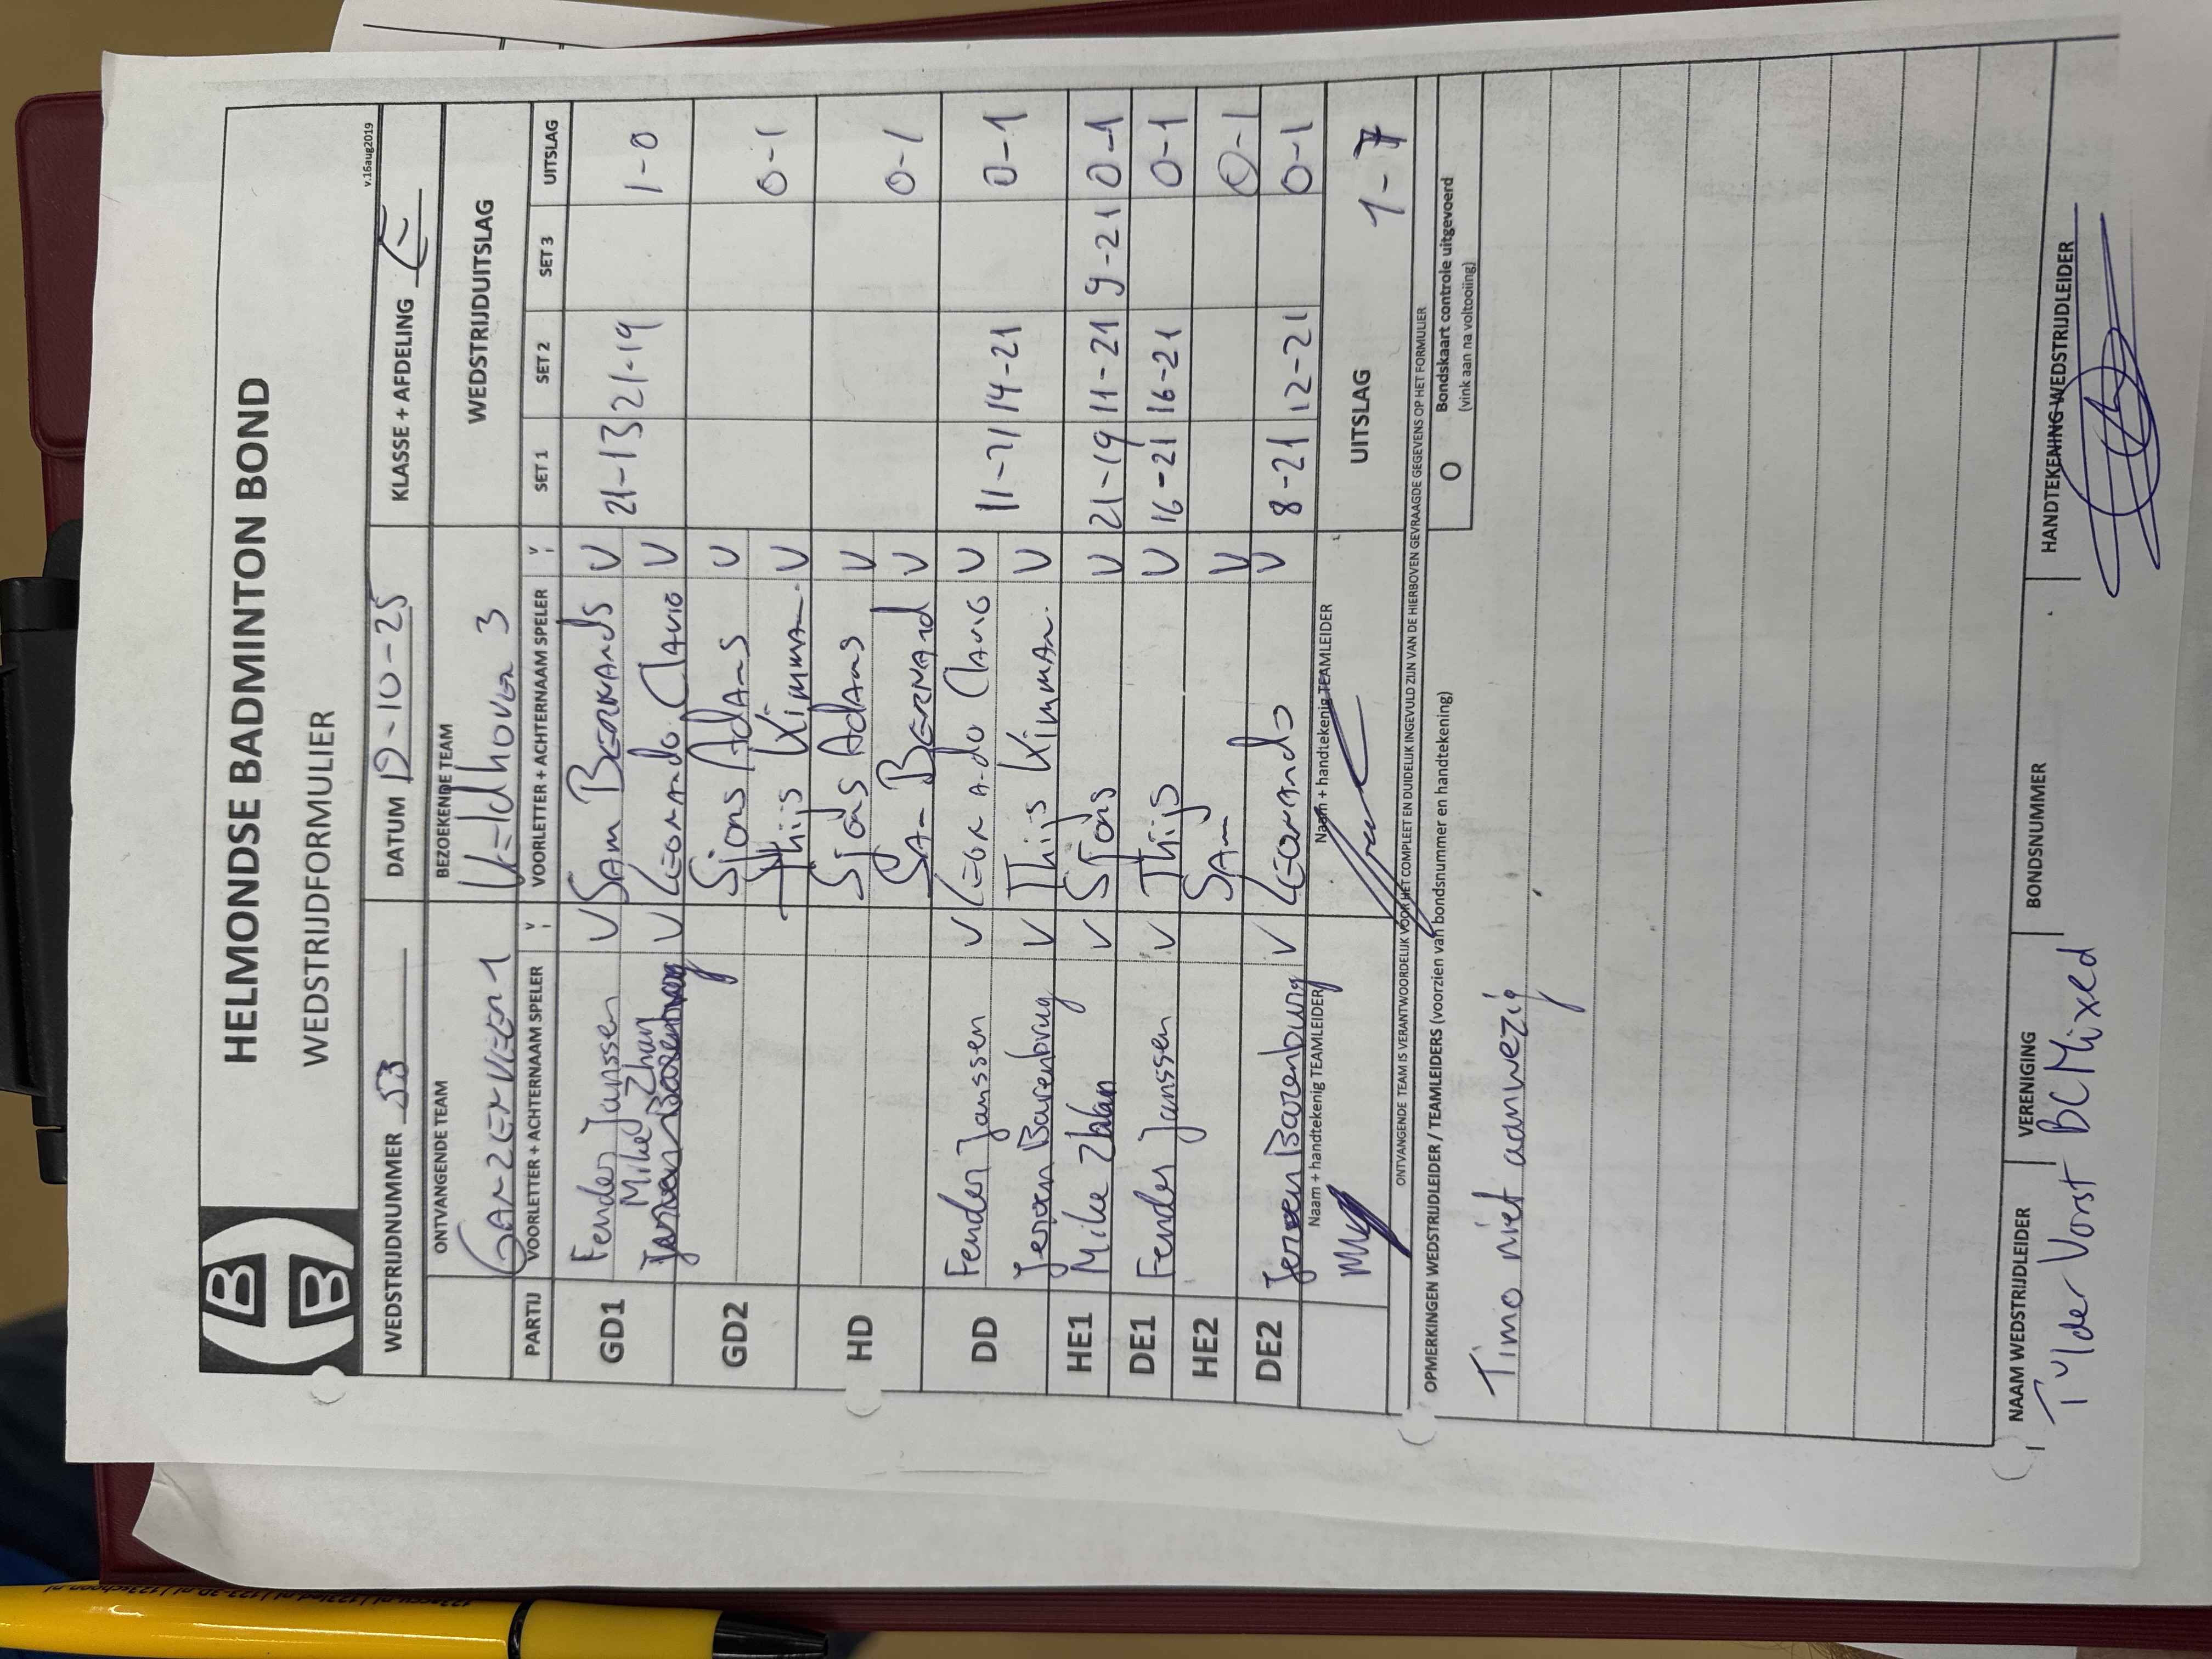 HELMONDSE BADMINTON BOND
WEDSTRIJDFORMULIER
v.16aug2019
WEDSTRIJDNUMMER 53 DATUM 12-10-25 KLASSE + AFDELING E
ONTVANGENDE TEAM BEZOEKENDE TEAM WEDSTRIJDUITSLAG
Ganzerveer 1 Veldhoven 3
PARTIJ VOORLETTER + ACHTERNAAM SPELER VOORLETTER + ACHTERNAAM SPELER SET 1 SET 2 SET 3 UITSLAG
GD1 Fender Janssen V Sam Bernards V 21-13 21-19 1-0
Mike Zhan V Leonardo Clavio V
GD2 Sjors Adams V 0-1
Thijs Kimman V
HD Sjors Adams V 0-1
Sam Bernard V
DD Fender Janssen V Leonardo Clavio V 11-21 14-21 0-1
Jeroen Barenbrug V Thijs Kimman V
HE1 Mike Zhan V Sjors V 21-19 11-21 9-21 0-1
DE1 Fender Janssen V Thijs V 16-21 16-21 0-1
HE2 Sam V 0-1
DE2 Jeroen Barenburg V Leonardo V 8-21 12-21 0-1
Naam + handtekenig TEAMLEIDER Naam + handtekenig TEAMLEIDER UITSLAG 1-7
ONTVANGENDE TEAM IS VERANTWOORDELIJK VOOR HET COMPLEET EN DUIDELIJK INGEVULD ZIJN VAN DE HIERBOVEN GEVRAAGDE GEGEVENS OP HET FORMULIER
OPMERKINGEN WEDSTRIJDLEIDER / TEAMLEIDERS (voorzien van bondsnummer en handtekening) O Bondskaart controle uitgevoerd
(vink aan na voltooiing)
Timo niet aanwezig
NAAM WEDSTRIJDLEIDER VERENIGING BONDSNUMMER HANDTEKENING WEDSTRIJDLEIDER
T v/der Vorst BC Mixed